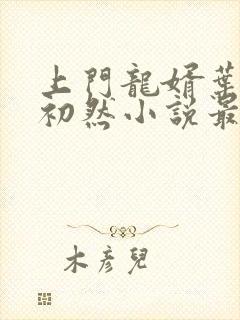 上門龍婿葉
初然小説最
木彥兒